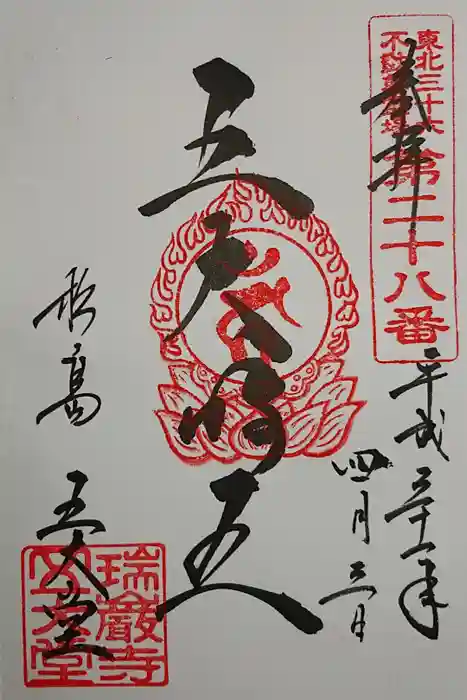 東北三十六
不動尊霊場
第二十八番
奉拝
平成三十一年
四月三日
五大明王
松島 五大堂
瑞巖寺
五大堂